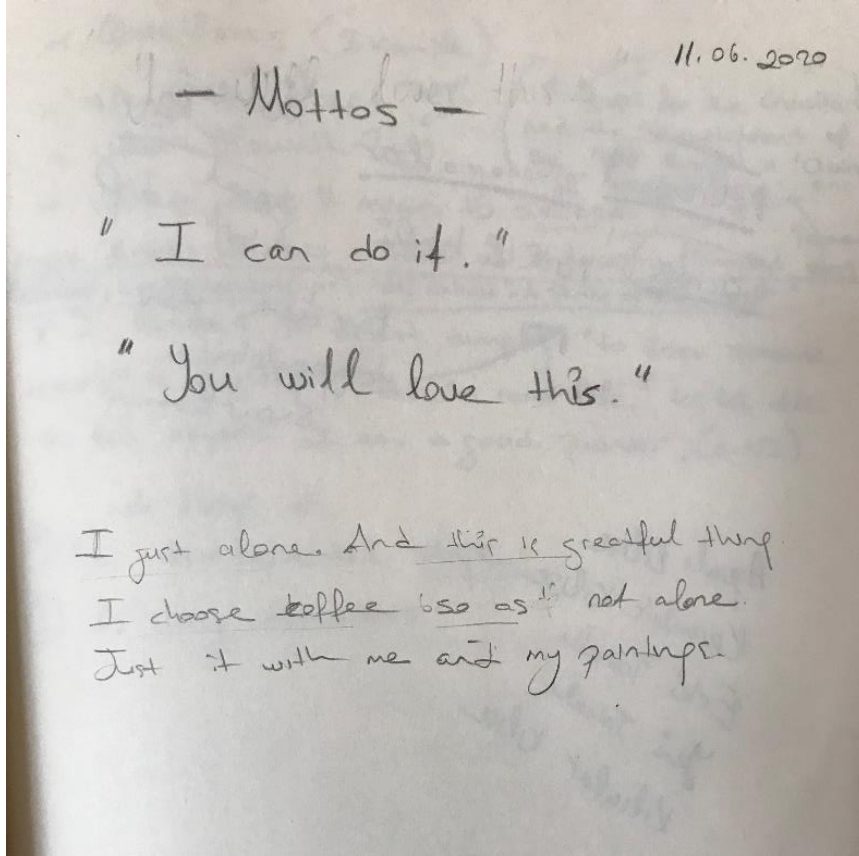 11.06.2020
- Mottos -
"I can do it."
"You will love this."
I just alone. And this is greatful thing.
I choose coffee so as not alone.
Just it with me and my paintings.